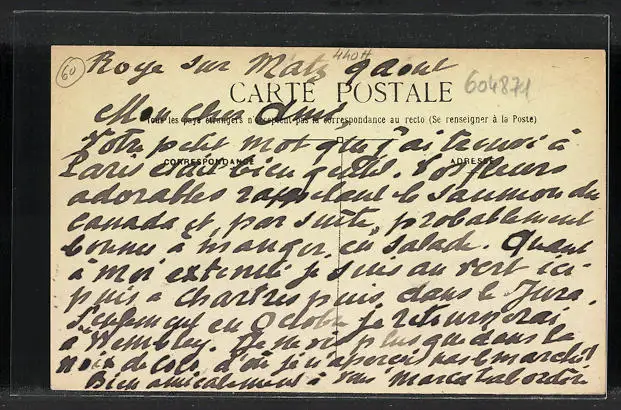 60
Roye sur Matz 9 aout
440H
CARTE POSTALE
604874
Mon cher ami,
Tous les pays étrangers n'acceptent pas la correspondance au recto (Se renseigner à la Poste)
Votre petit mot que j'ai trouvé à
CORRESPONDANCE
ADRESSE
Paris était bien gentil. Vos fleurs
adorables rappellent le saumon du
Canada et, par suite, probablement
bonnes à manger en salade. Quant
à moi extenué je suis au vert ici
puis à Chartres puis dans le Jura.
Seulement en Octobre je retournerai
à Wembley. Je ne vis plus que dans la
noix de coco d'où je n'aperçois pas le marché!
Bien amicalement à vous